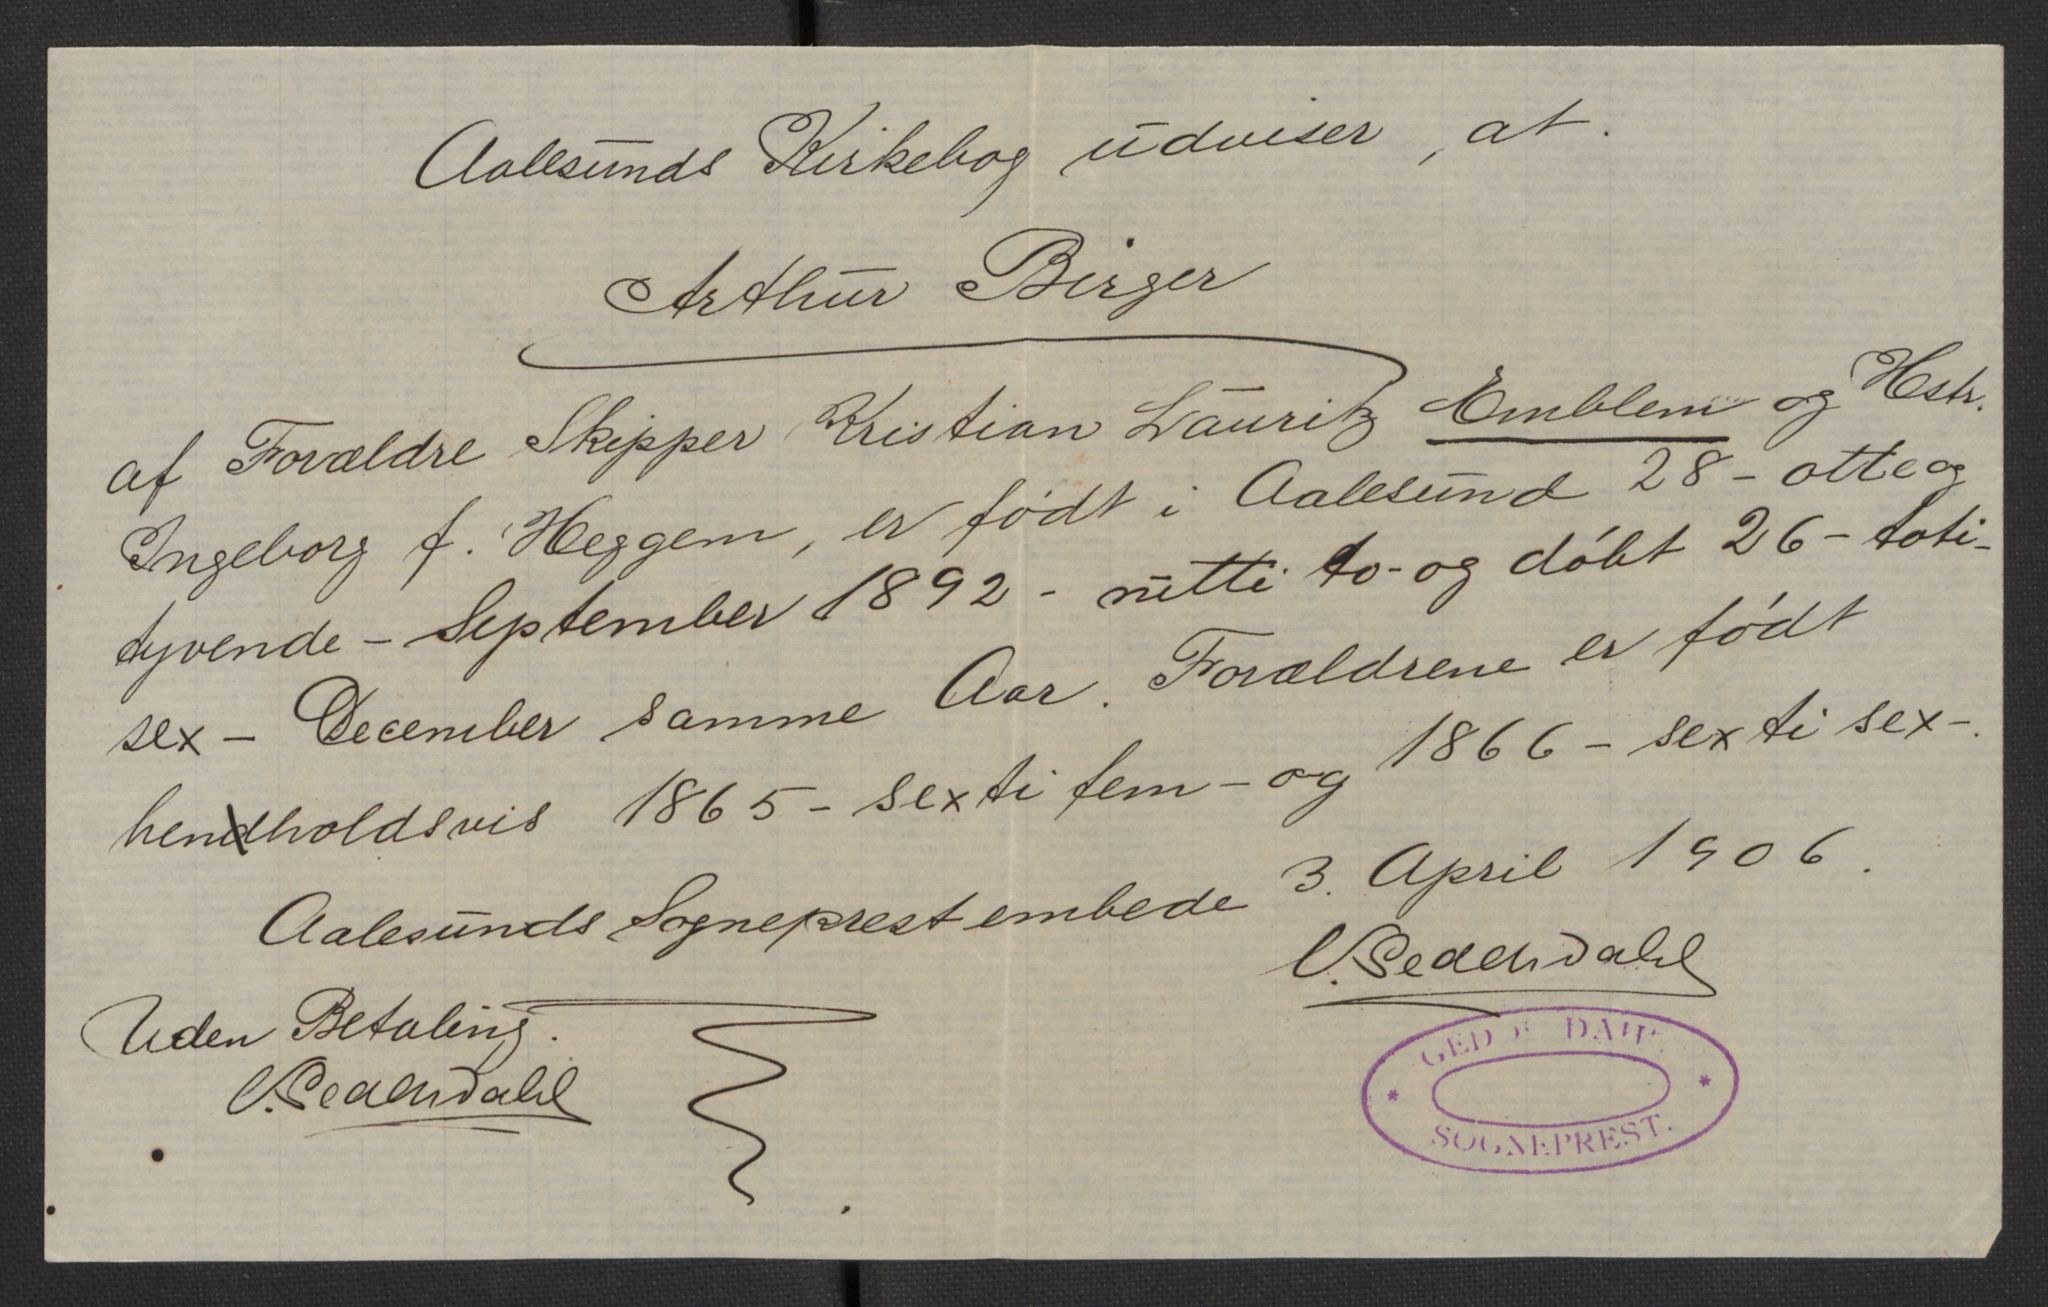 Aalesunds Kirkebog udviser, at.
Arthur Birger
af Forældre Skipper Kristian Lauritz Emblem og Hstr.
Ingeborg f. Heggem, er født i Aalesund 28 - otteog
tyvende - September 1892 - nitti to - og døbt 26 - toti-
sex - December samme Aar. Forældrene er født
henholdsvis 1865 - sexti fem - og 1866 - sexti sex -.
Aalesunds Sogneprestembede 3. April 1906.
V. Geddedahl
Uden Betaling.
V. Geddedahl
SOGNEPREST.